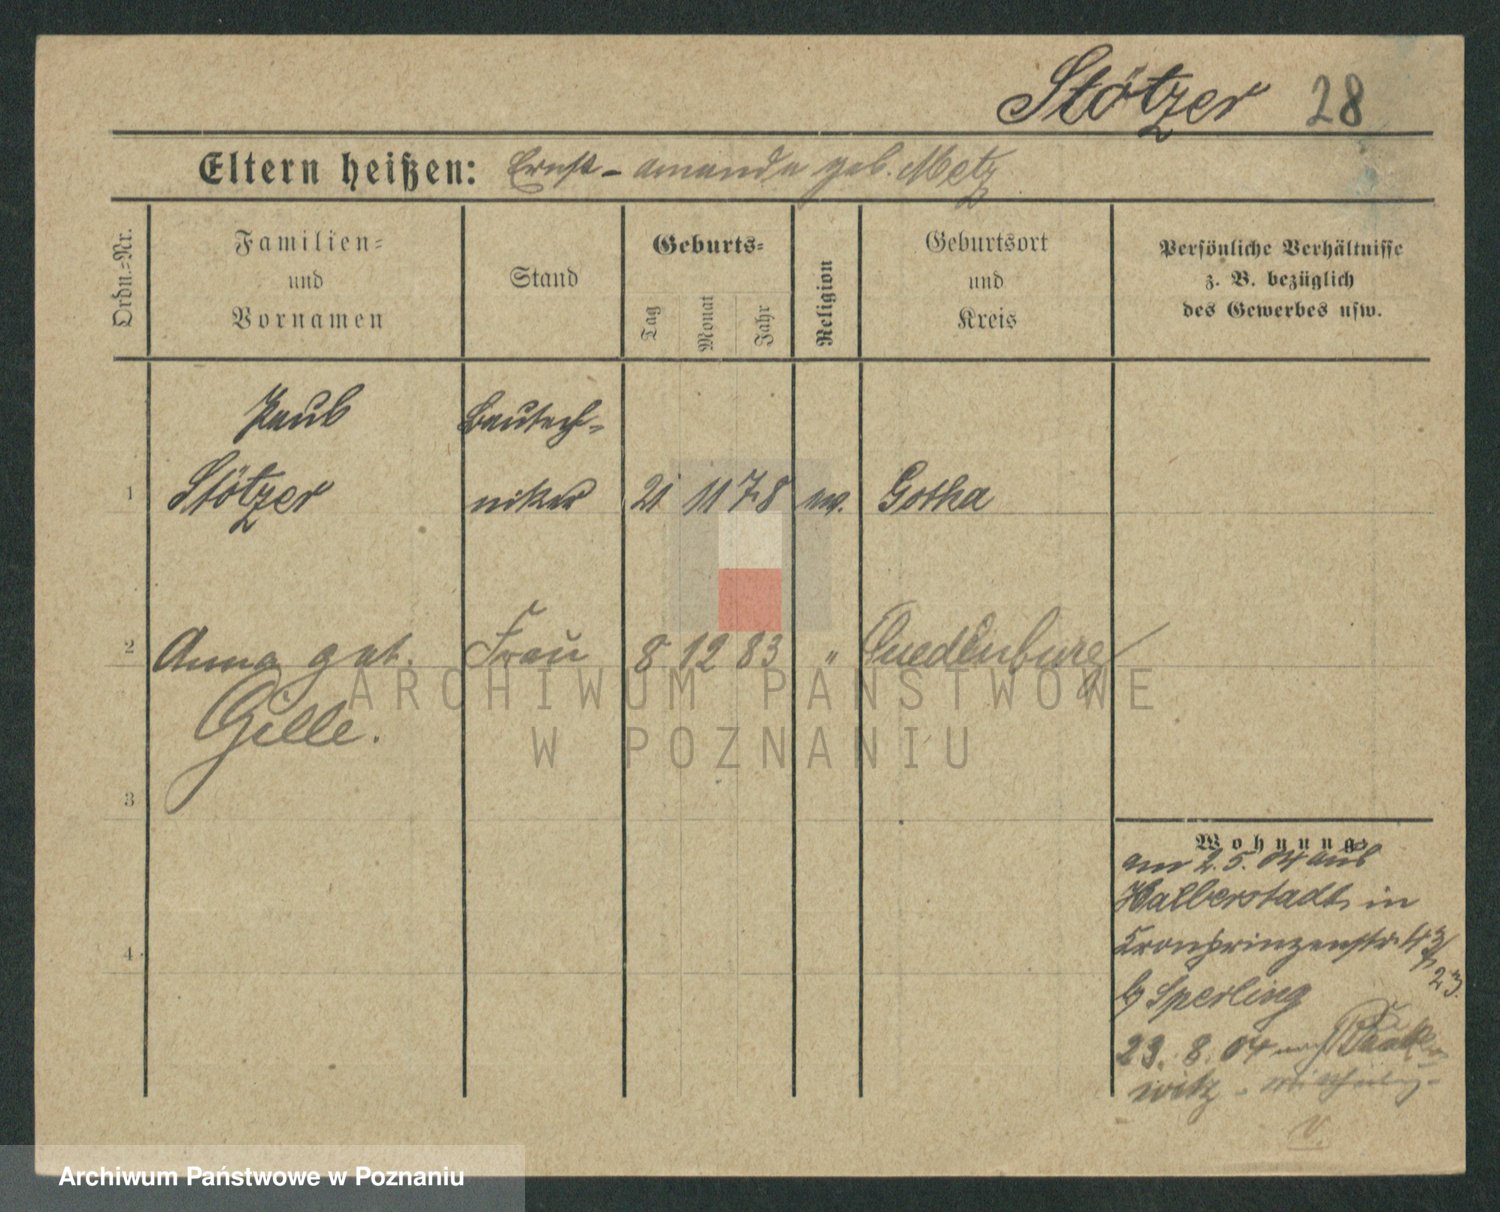 Stötzer 28
Eltern heißen: Ernst - Amanda geb. Metz
Ordn.=Nr.
Familien=
und
Vornamen
Stand
Geburts=
Tag
Monat
Jahr
Religion
Geburtsort
und
Kreis
Persönliche Verhältnisse
z. B. bezüglich
des Gewerbes usw.
Paul Bautech-
1 Stötzer niker 21 11 78 ev. Gotha
2 Anna geb. Frau 8 12 83 " Quedlenburg
Gille.
3
4
Wohnung
am 2.5.04 aus
Halberstadt in
Kronprinzenstr.
b/ Sperling
23. 8. 04
witz
ARCHIWUM PAŃSTWOWE
W POZNANIU
Archiwum Państwowe w Poznaniu